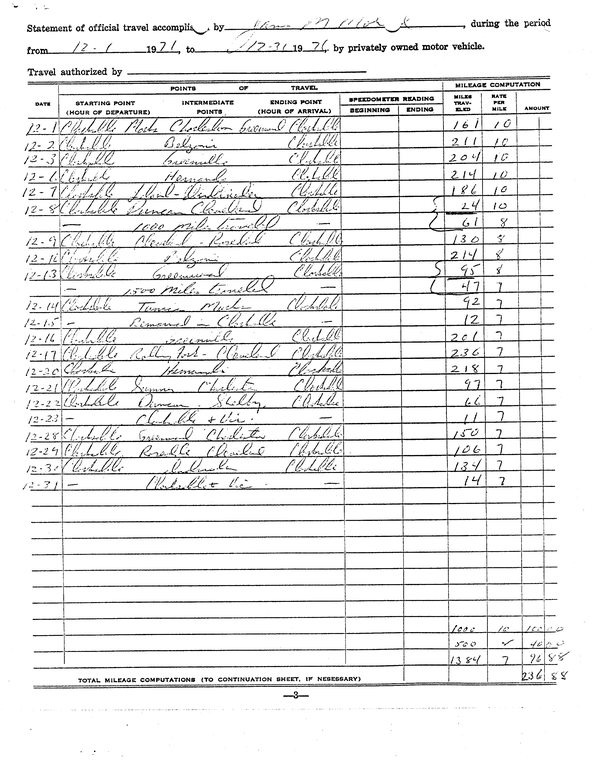 Statement of official travel accomplis , by , during the period
from 12-1 1971, to 12-31 1971, by privately owned motor vehicle.
Travel authorized by
POINTS OF TRAVEL MILEAGE COMPUTATION
DATE STARTING POINT (HOUR OF DEPARTURE) INTERMEDIATE POINTS ENDING POINT (HOUR OF ARRIVAL) SPEEDOMETER READING BEGINNING ENDING MILES TRAVELED RATE PER MILE AMOUNT
12-1 Clarksdale Marks Charleston Greenwood Clarksdale 161 10
12-2 Clarksdale Belzoni Clarksdale 211 10
12-3 Clarksdale Greenville Clarksdale 204 10
12-6 Clarksdale Hernando Clarksdale 214 10
12-7 Clarksdale Clarksdale 186 10
12-8 Clarksdale Duncan Cleveland Clarksdale 24 10
— 1000 miles traveled — 61 8
12-9 Clarksdale Cleveland - Rosedale Clarksdale 130 8
12-10 Clarksdale Belzoni Clarksdale 214 8
12-13 Clarksdale Greenwood Clarksdale 95 8
— 1500 miles traveled — 47 7
12-14 Clarksdale Marks Clarksdale 92 7
12-15 — Remained in Clarksdale — 12 7
12-16 Clarksdale Greenville Clarksdale 201 7
12-17 Clarksdale Rolling Fork - Cleveland Clarksdale 236 7
12-20 Clarksdale Hernando Clarksdale 218 7
12-21 Clarksdale Sumner Charleston Clarksdale 97 7
12-22 Clarksdale Duncan Shelby Clarksdale 66 7
12-23 — Clarksdale & Vic. — 11 7
12-28 Clarksdale Greenwood Charleston Clarksdale 150 7
12-29 Clarksdale Rosedale Cleveland Clarksdale 106 7
12-30 Clarksdale Clarksdale 134 7
12-31 — Clarksdale & Vic. — 14 7
1000 10 100 00
500 40 00
1384 7 96 88
TOTAL MILEAGE COMPUTATIONS (TO CONTINUATION SHEET, IF NESESSARY) 236 88
—3—